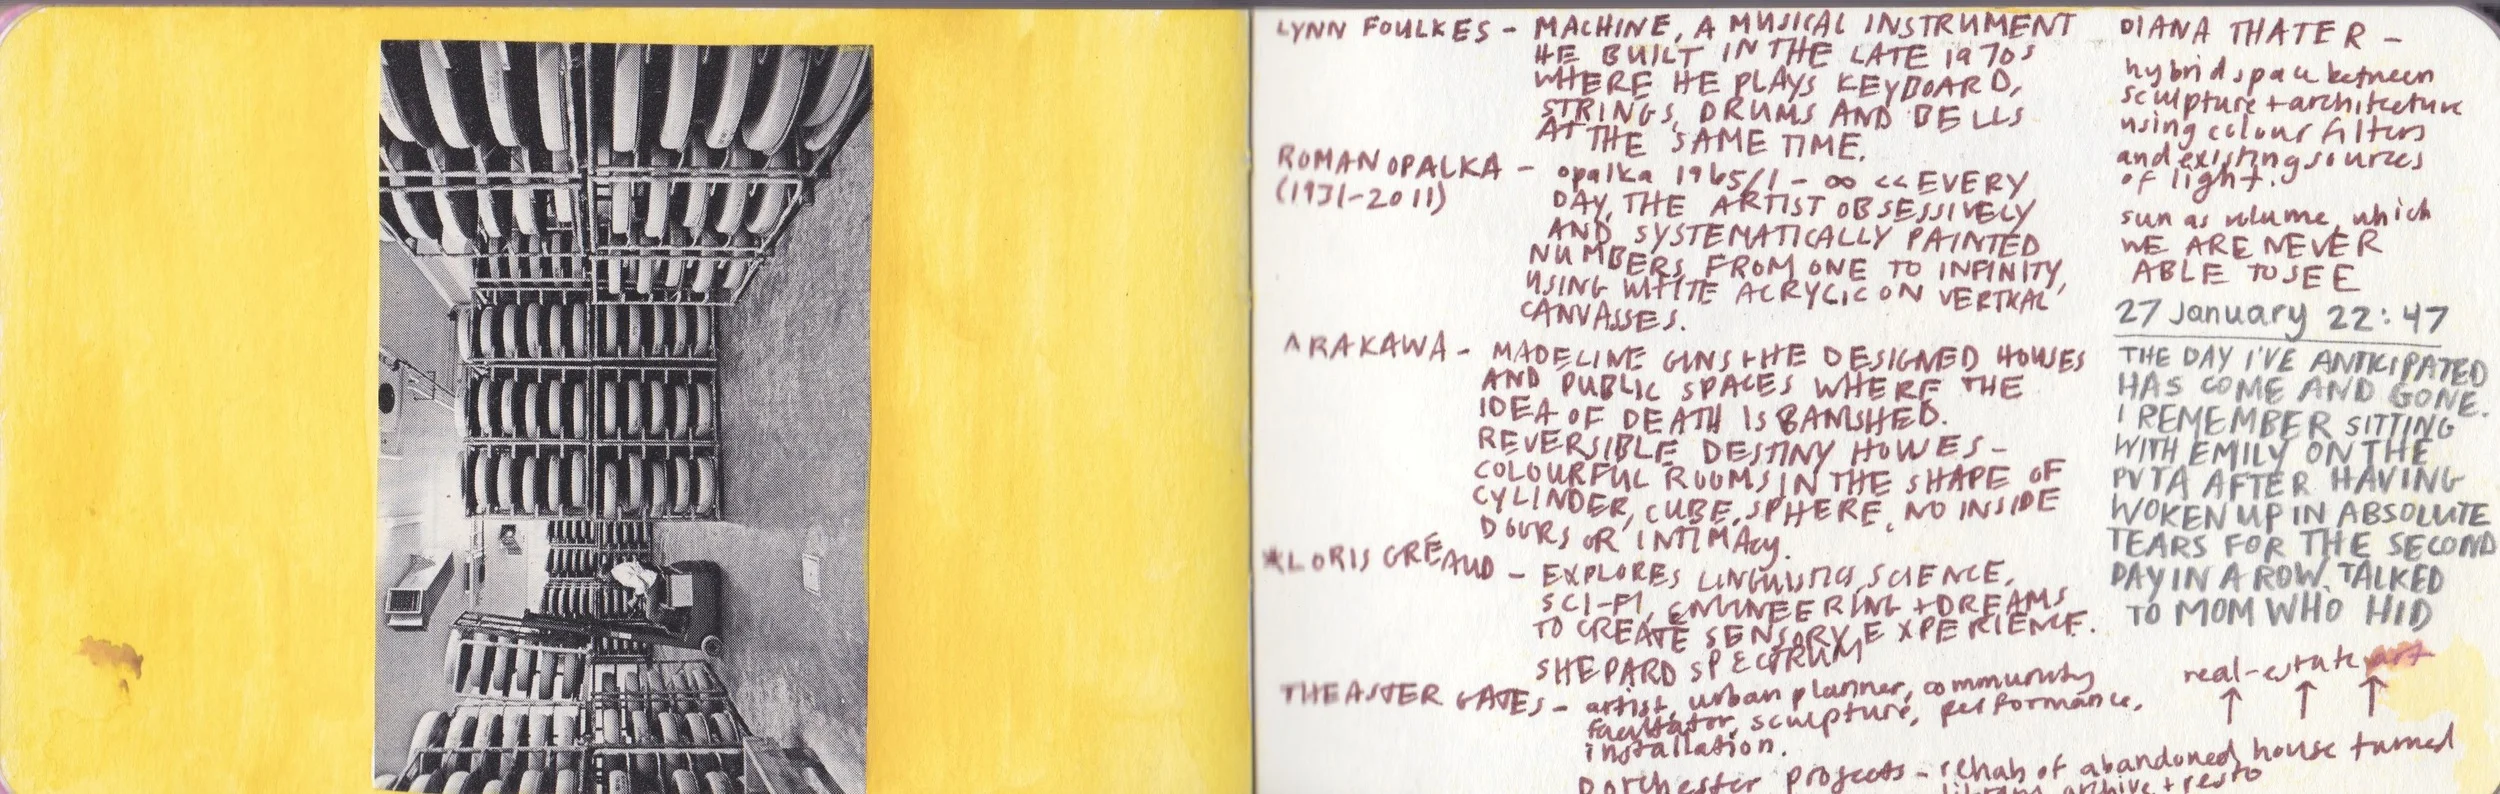 LYNN FOULKES - MACHINE, A MUSICAL INSTRUMENT
HE BUILT IN THE LATE 1970s
WHERE HE PLAYS KEYBOARD,
STRINGS, DRUMS AND BELLS
AT THE SAME TIME.
ROMAN OPALKA - opalka 1965/1 - ∞ << EVERY
(1931-2011)
DAY, THE ARTIST OBSESSIVELY
AND SYSTEMATICALLY PAINTED
NUMBERS FROM ONE TO INFINITY,
USING WHITE ACRYLIC ON VERTICAL
CANVASSES.
ARAKAWA - MADELINE GINS + HE DESIGNED HOUSES
AND PUBLIC SPACES WHERE THE
IDEA OF DEATH IS BANISHED.
REVERSIBLE DESTINY HOUSES -
COLOURFUL ROOMS IN THE SHAPE OF
CYLINDER, CUBE, SPHERE, NO INSIDE
DOORS OR INTIMACY.
*LORIS GREAUD - EXPLORES LINGUISTICS, SCIENCE,
SCI-FI, ENGINEERING + DREAMS
TO CREATE SENSORY EXPERIENCE.
SHEPARD SPECTRUM
THEASTER GATES - artist, urban planner, community
facilitator, sculpture, performance,
installation.
Dorchester projects - rehab of abandoned house turned
library, archive + resto
DIANA THATER -
hybrid space between
sculpture + architecture
using colour filters
and existing sources
of light.
sun as volume, which
WE ARE NEVER
ABLE TO SEE
27 January 22:47
THE DAY I'VE ANTICIPATED
HAS COME AND GONE.
I REMEMBER SITTING
WITH EMILY ON THE
PVTA AFTER HAVING
WOKEN UP IN ABSOLUTE
TEARS FOR THE SECOND
DAY IN A ROW. TALKED
TO MOM WHO HID
real-estate art
↑ ↑ ↑